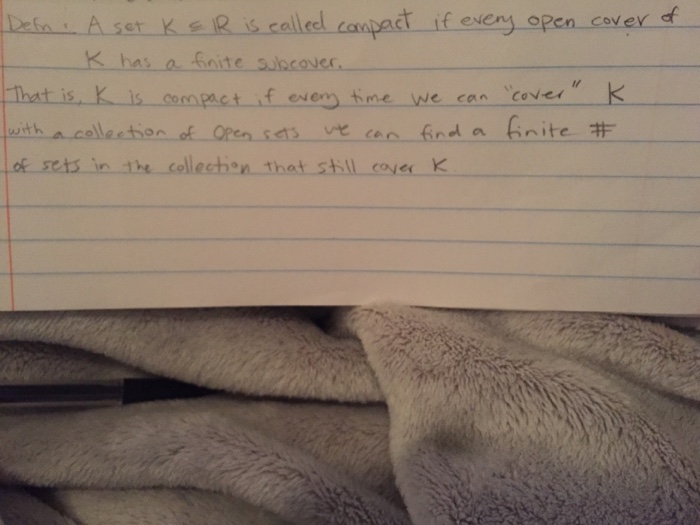 Defn: A set K ⊆ ℝ is called compact if every open cover of
K has a finite subcover.
That is, K is compact if every time we can "cover" K
with a collection of open sets we can find a finite #
of sets in the collection that still cover K